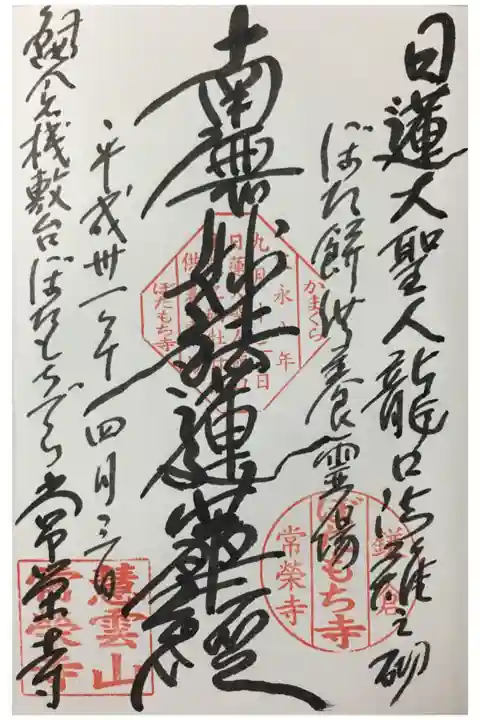 日蓮大聖人龍口法難之砌
ぼた餅供養霊場
南無妙法蓮華経
平成卅一年四月三日
鎌倉棧敷台ぼたもちでら常栄寺
かまくら
永 年
九月十二日
日蓮大
供養
ぼたもち寺
鎌倉
ぼたもち寺
常榮寺
慧雲山
常榮寺